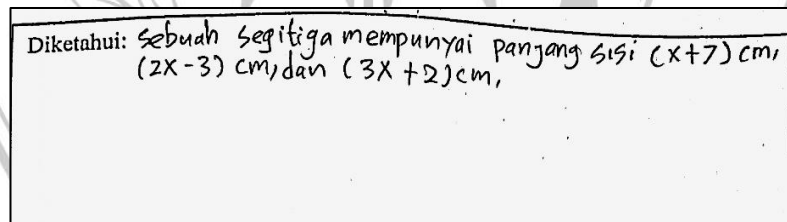 Diketahui: Sebuah segitiga mempunyai panjang sisi (x+7) cm,
(2x-3) cm, dan (3x+2) cm,